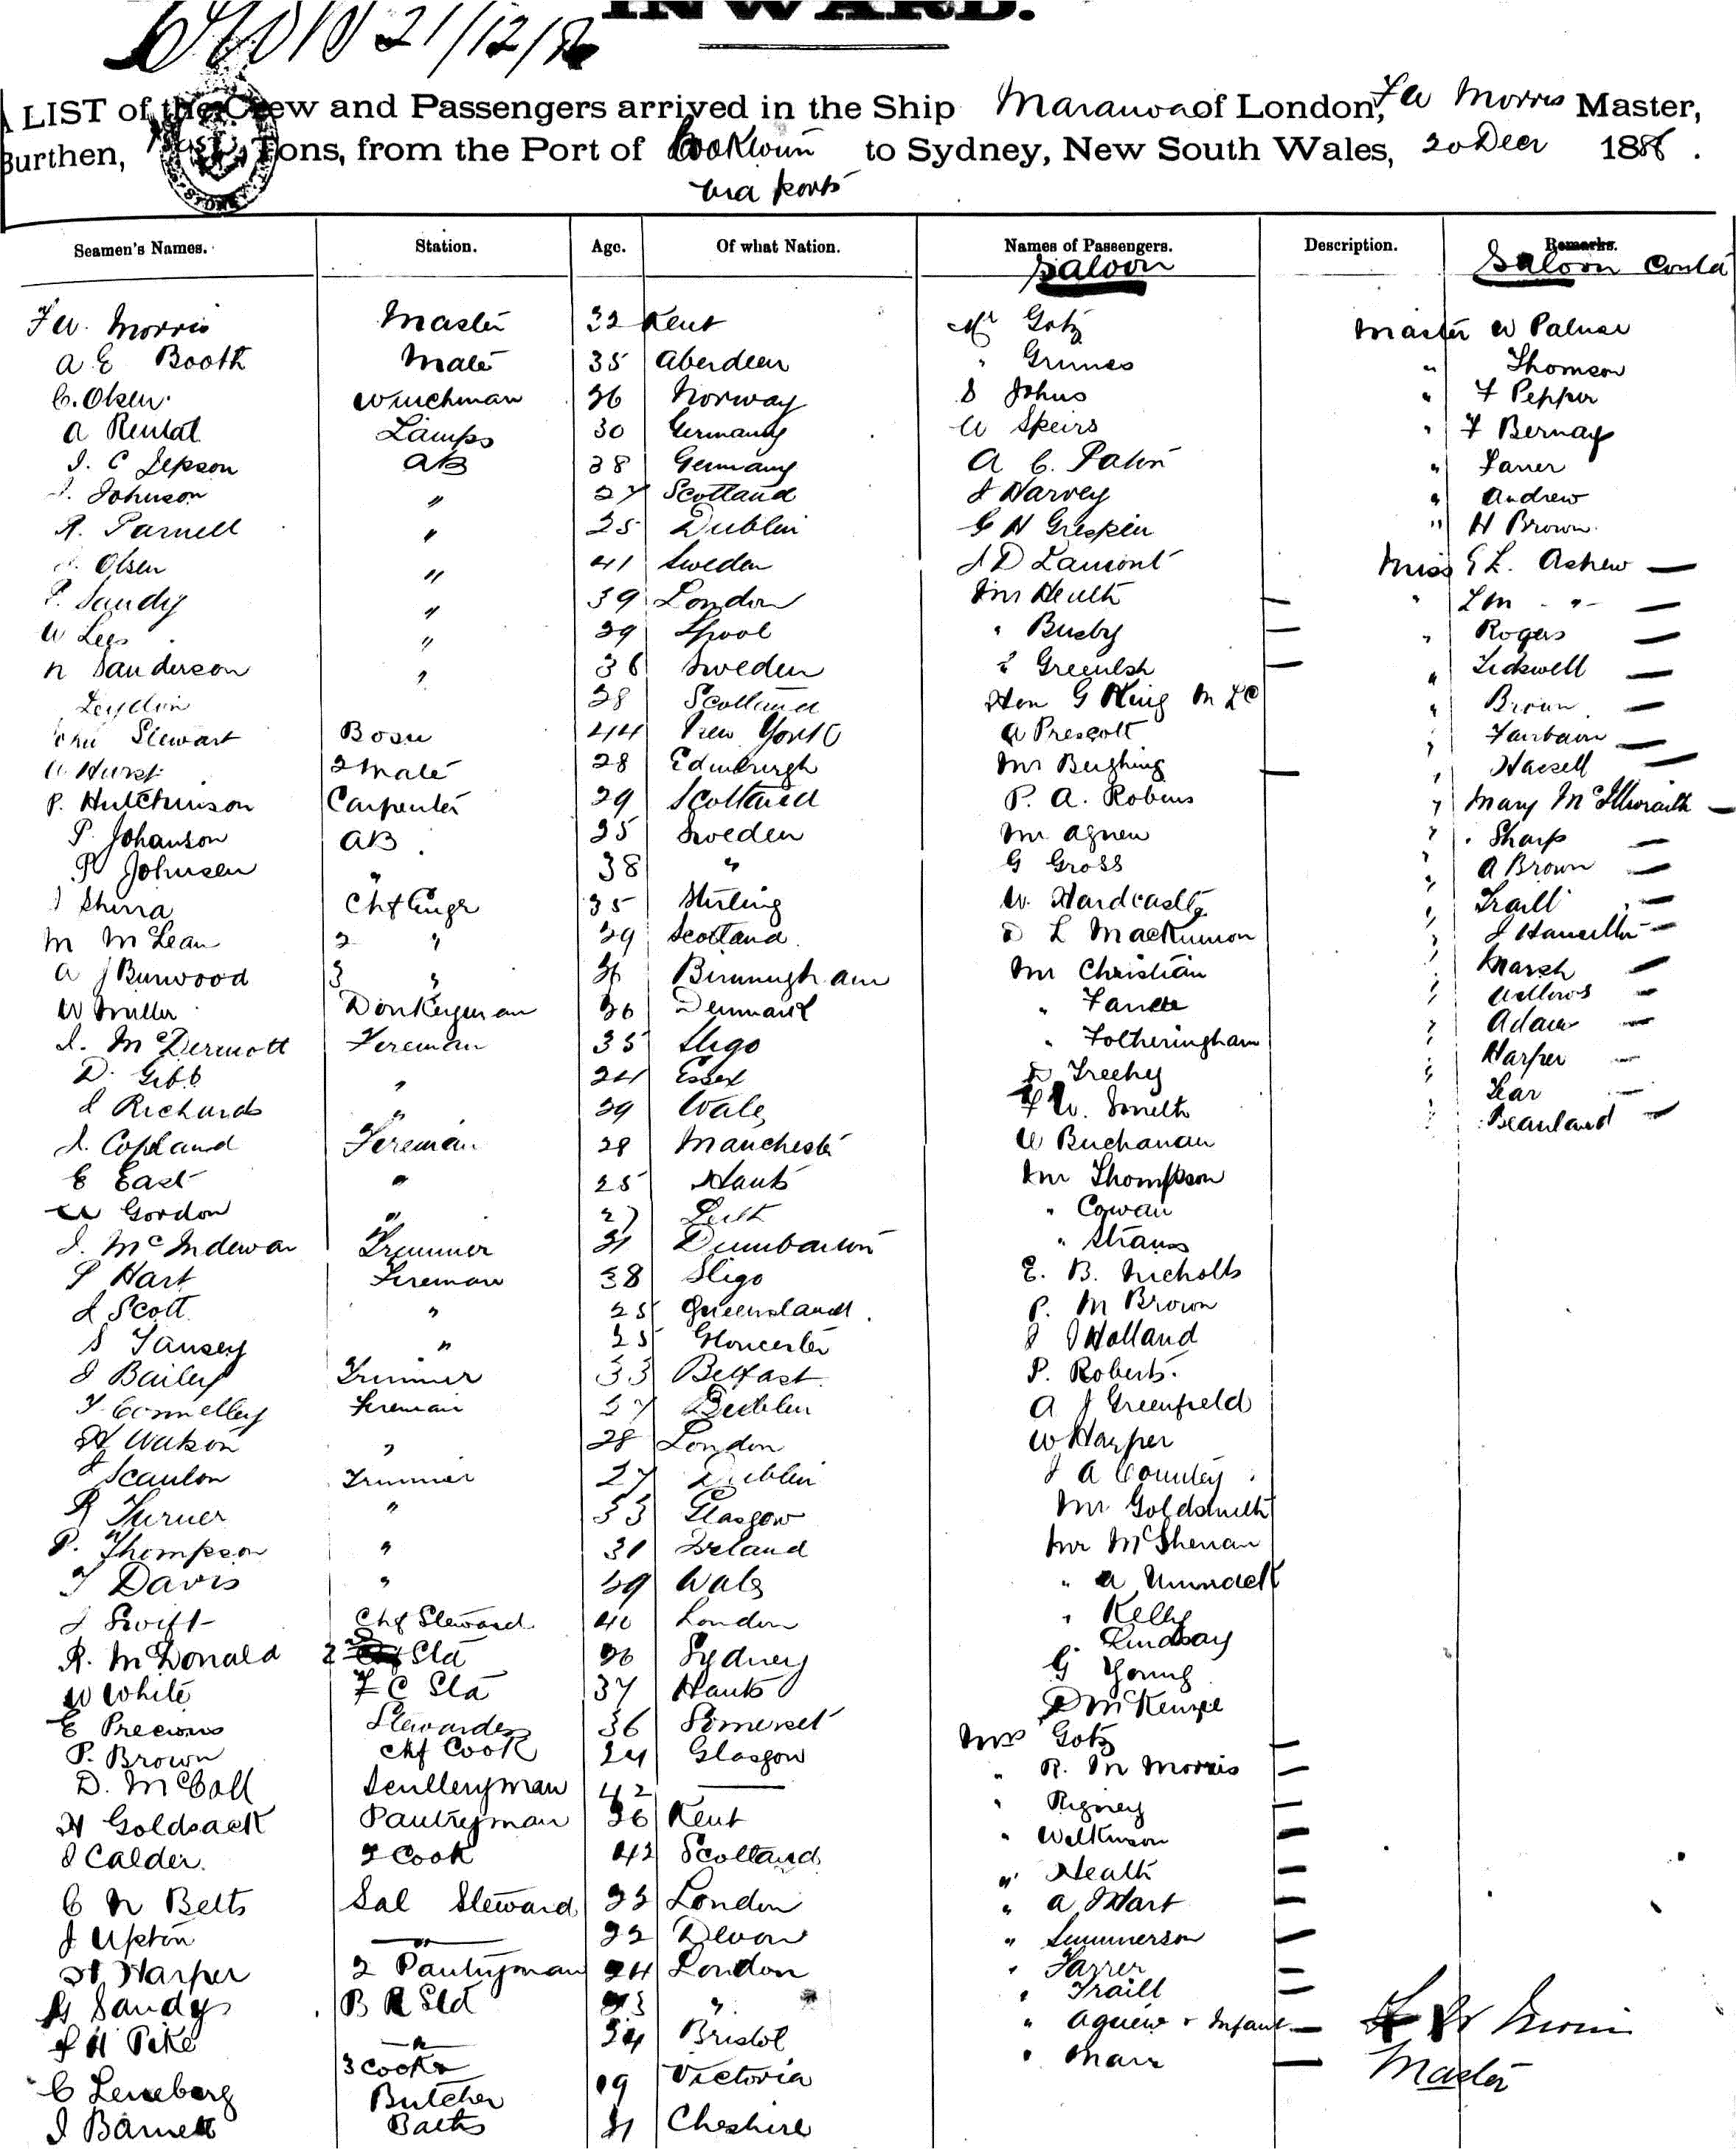 INWARD.
21/12/86
A LIST of the Crew and Passengers arrived in the Ship Maranoa of London, F W Morris Master,
Burthen, Tons, from the Port of Cooktown to Sydney, New South Wales, 20 Decr 1886.
via ports
Seamen's Names. Station. Age. Of what Nation. Names of Passengers. Description. Remarks.
Saloon Saloon Contd
F W. Morris Master 32 Kent Mr Gotz Master W Palmer
A E Booth Mate 35 Aberdeen " Grimes " Thomson
C. Olsen Winchman 36 Norway S Johns " F Pepper
A Rental Lamps 30 Germany W Speirs " F Bernays
J. C Jepson AB 38 Germany A C. Paton "
J. Johnson " 27 Scotland J Harvey " Andrew
R. Parnell " 25 Dublin G H " H Brown
J. Olsen " 41 Sweden J D Lamont Miss E L. Askew —
P. Sandy " 39 London Mr Heath — " L M " —
W Lees " 39 Lpool " Busby — " Rogers —
N Sanderson " 36 Sweden " — " Lidswell —
Leydin 28 Scotland Hon G King M L C " Brown —
Stewart Bosn 44 New York A Prescott " Fairbairn —
Hurst 2 Mate 28 Edinburgh Mrs — " Hassell —
P. Hutchinson Carpenter 29 Scotland P. A. Robins " Mary McIlwraith —
P. Johanson AB 35 Sweden Mr Agnew " Sharp —
P Johnsen " 38 " G Gross " A Brown —
J Shirra Chf Engr 35 Stirling W. Hardcastle " Traill —
M McLean 2 " 29 Scotland D L MacKinnon " J Hamilton —
A J Burwood 3 " Birmingham Mr Christian " Marsh —
W Miller Donkeyman 36 Denmark " —
J. McDermott Fireman 35 Sligo " Fotheringham " Adam —
D. Gibb " 24 Essex Treehy " Harper —
J Richards " 29 Wales F W. Smith " Lear —
J. Copland Fireman 28 Manchester W Buchanan " Beauland —
E East " 25 Hants Mr Thompson
W Gordon " 27 Leith " Cowan
J. McIndewar Trimmer 31 Dumbarton " Strauss
P Hart Fireman 38 Sligo E. B. Nicholls
J Scott " 25 Queensland P. M Brown
S Tansey " 25 Gloucester J J Holland
J Bailey Trimmer 33 Belfast P. Roberts
T Connelley Fireman 37 Dublin A J Greenfield
H Watson " 28 London W Harper
J Scanlon Trimmer 27 Dublin J A Countey
R Turner " 33 Glasgow Mr Goldsmith
P. Thompson " 31 Ireland Mr McShenan
T Davis " 29 Wales " A
J Swift Chf Steward 40 London " Kelly
R. McDonald 2 Std 26 Sydney G. Lindsay
W White F C Std 37 Hants G Young
E Precious Stewardess 36 Somerset D McKenzie
P. Brown Chf Cook 24 Glasgow Mrs Gotz —
D. McCall Sculleryman 42 — " R. M Morris —
H Goldsack Pantryman 26 Kent " Rigney —
J Calder. 2 Cook 42 Scotland " Wilkinson —
C N Betts Sal Steward 23 London " Heath —
J Upton " 22 Devon " A J Hart —
H Harper 2 Pantryman 24 London " Summerson —
G Sandys B R Std " " Farrer —
J H Pike " 24 Bristol " Traill —
C Leneberg 3 Cook 19 Victoria " Agnew & Infant —
J Barnett Butcher 21 Cheshire " Marr —
Baths
F W Morris
Master